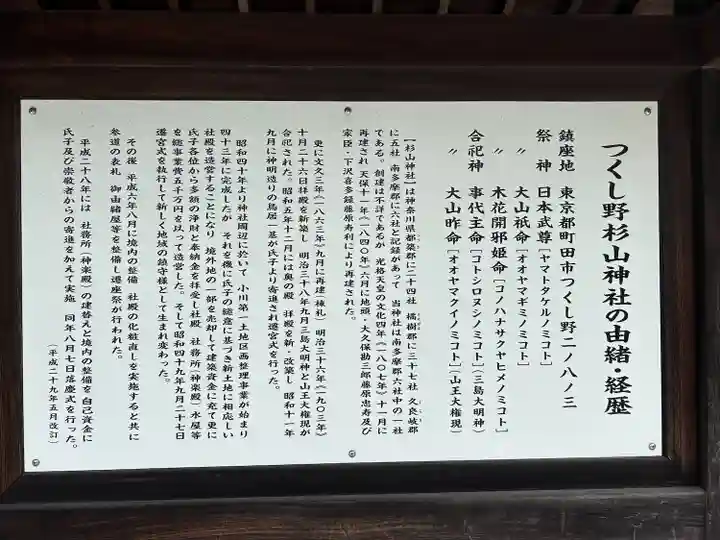 つくし野杉山神社の由緒・経歴
鎮座地 東京都町田市つくし野二ノ八ノ三
祭 神 日本武尊[ヤマトタケルノミコト]
〃 大山祇命[オオヤマギミノミコト]
〃 木花開邪姫命[コノハナサクヤヒメノミコト]
合祀神 事代主命[コトシロヌシノミコト](三島大明神)
〃 大山昨命[オオヤマクイノミコト](山王大権現)
【杉山神社】は神奈川県都築郡に二十四社 橘樹郡に三十七社 久良岐郡
に五社 南多摩郡に六社と記録があって 当神社は南多摩郡六社中の一社
である。創建は不詳であるが 光格天皇の文化四年(一八〇七年)十一月に
再建され 天保十一年(一八四〇年)六月に地頭・大久保勘三郎藤原忠寿及び
家臣・下沢喜多録藤原寿利により再建された。
更に文久三年(一八六三年)九月に再建(棟札) 明治三十六年(一九〇三年)
十月二十六日拝殿を新築し 明治三十八年九月三島大明神と山王大権現が
合祀された。昭和五年十二月には奥の殿 拝殿を新・改築し 昭和十一年
九月に神明造りの鳥居一基が氏子より寄進され遷宮式を行った。
昭和四十年より神社周辺に於いて 小川第一土地区画整理事業が始まり
四十三年に完成したが それを機に氏子の総意に基づき新土地に相応しい
社殿を造営することになり 境外地の一部を売却して建築資金に充て更に
氏子各位から多額の浄財と奉納金を拝受し社殿 社務所(神楽殿)水屋等
を総事業費五千万円を以って造営した。そして昭和四十九年九月二十七日
遷宮式を執行して新しく地域の鎮守様として生まれ変わった。
その後 平成六年八月に境内の整備 社殿の化粧直しを実施すると共に
参道の表札 御由緒屋等を整備し遷座祭が行われた。
平成二十八年には 社務所(神楽殿)の建替えと境内の整備を自己資金に
氏子及び崇敬者からの寄進を加えて実施 同年八月七日落慶式を行った。
(平成二十九年五月改訂)